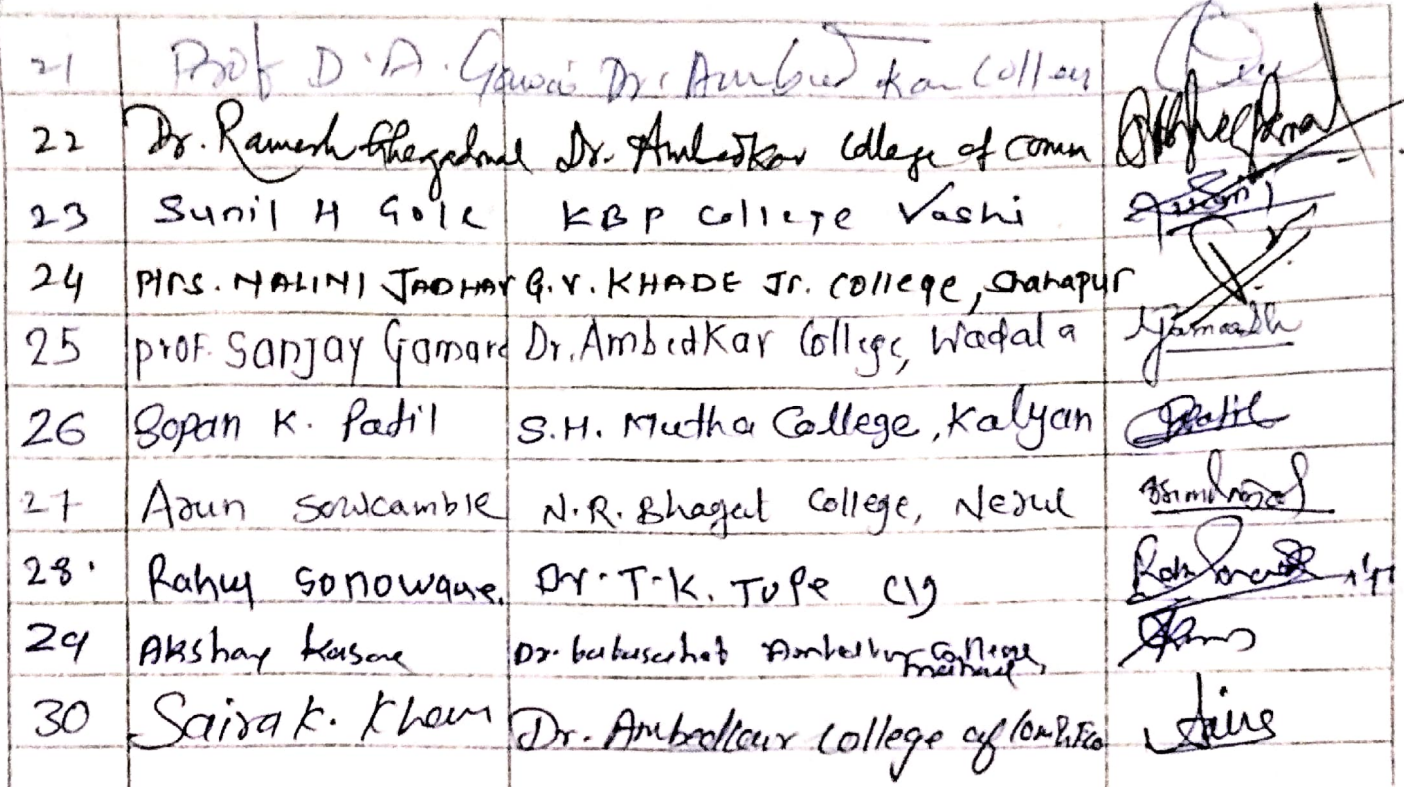 21 Prof D.A. Gawai Dr. Ambedkar College
22 Dr. Ramesh Ghegadmal Dr. Ambedkar College of Comm
23 Sunil H Gole KBP College Vashi
24 Mrs. NALINI JADHAV G.V. KHADE Jr. College, Shahapur
25 prof. Sanjay Gamare Dr. Ambedkar College, Wadala
26 Sopan K. Patil S.H. Mutha College, Kalyan Patil
27 Arun Sowcamble N.R. Bhagat College, Nerul
28. Rahul Sonowane. Dr. T.K. Tope Clg
29 Akshay Kasare Dr. babasaheb Ambedkar College,
30 Saira K. Khan Dr. Ambedkar College of Com & Eco